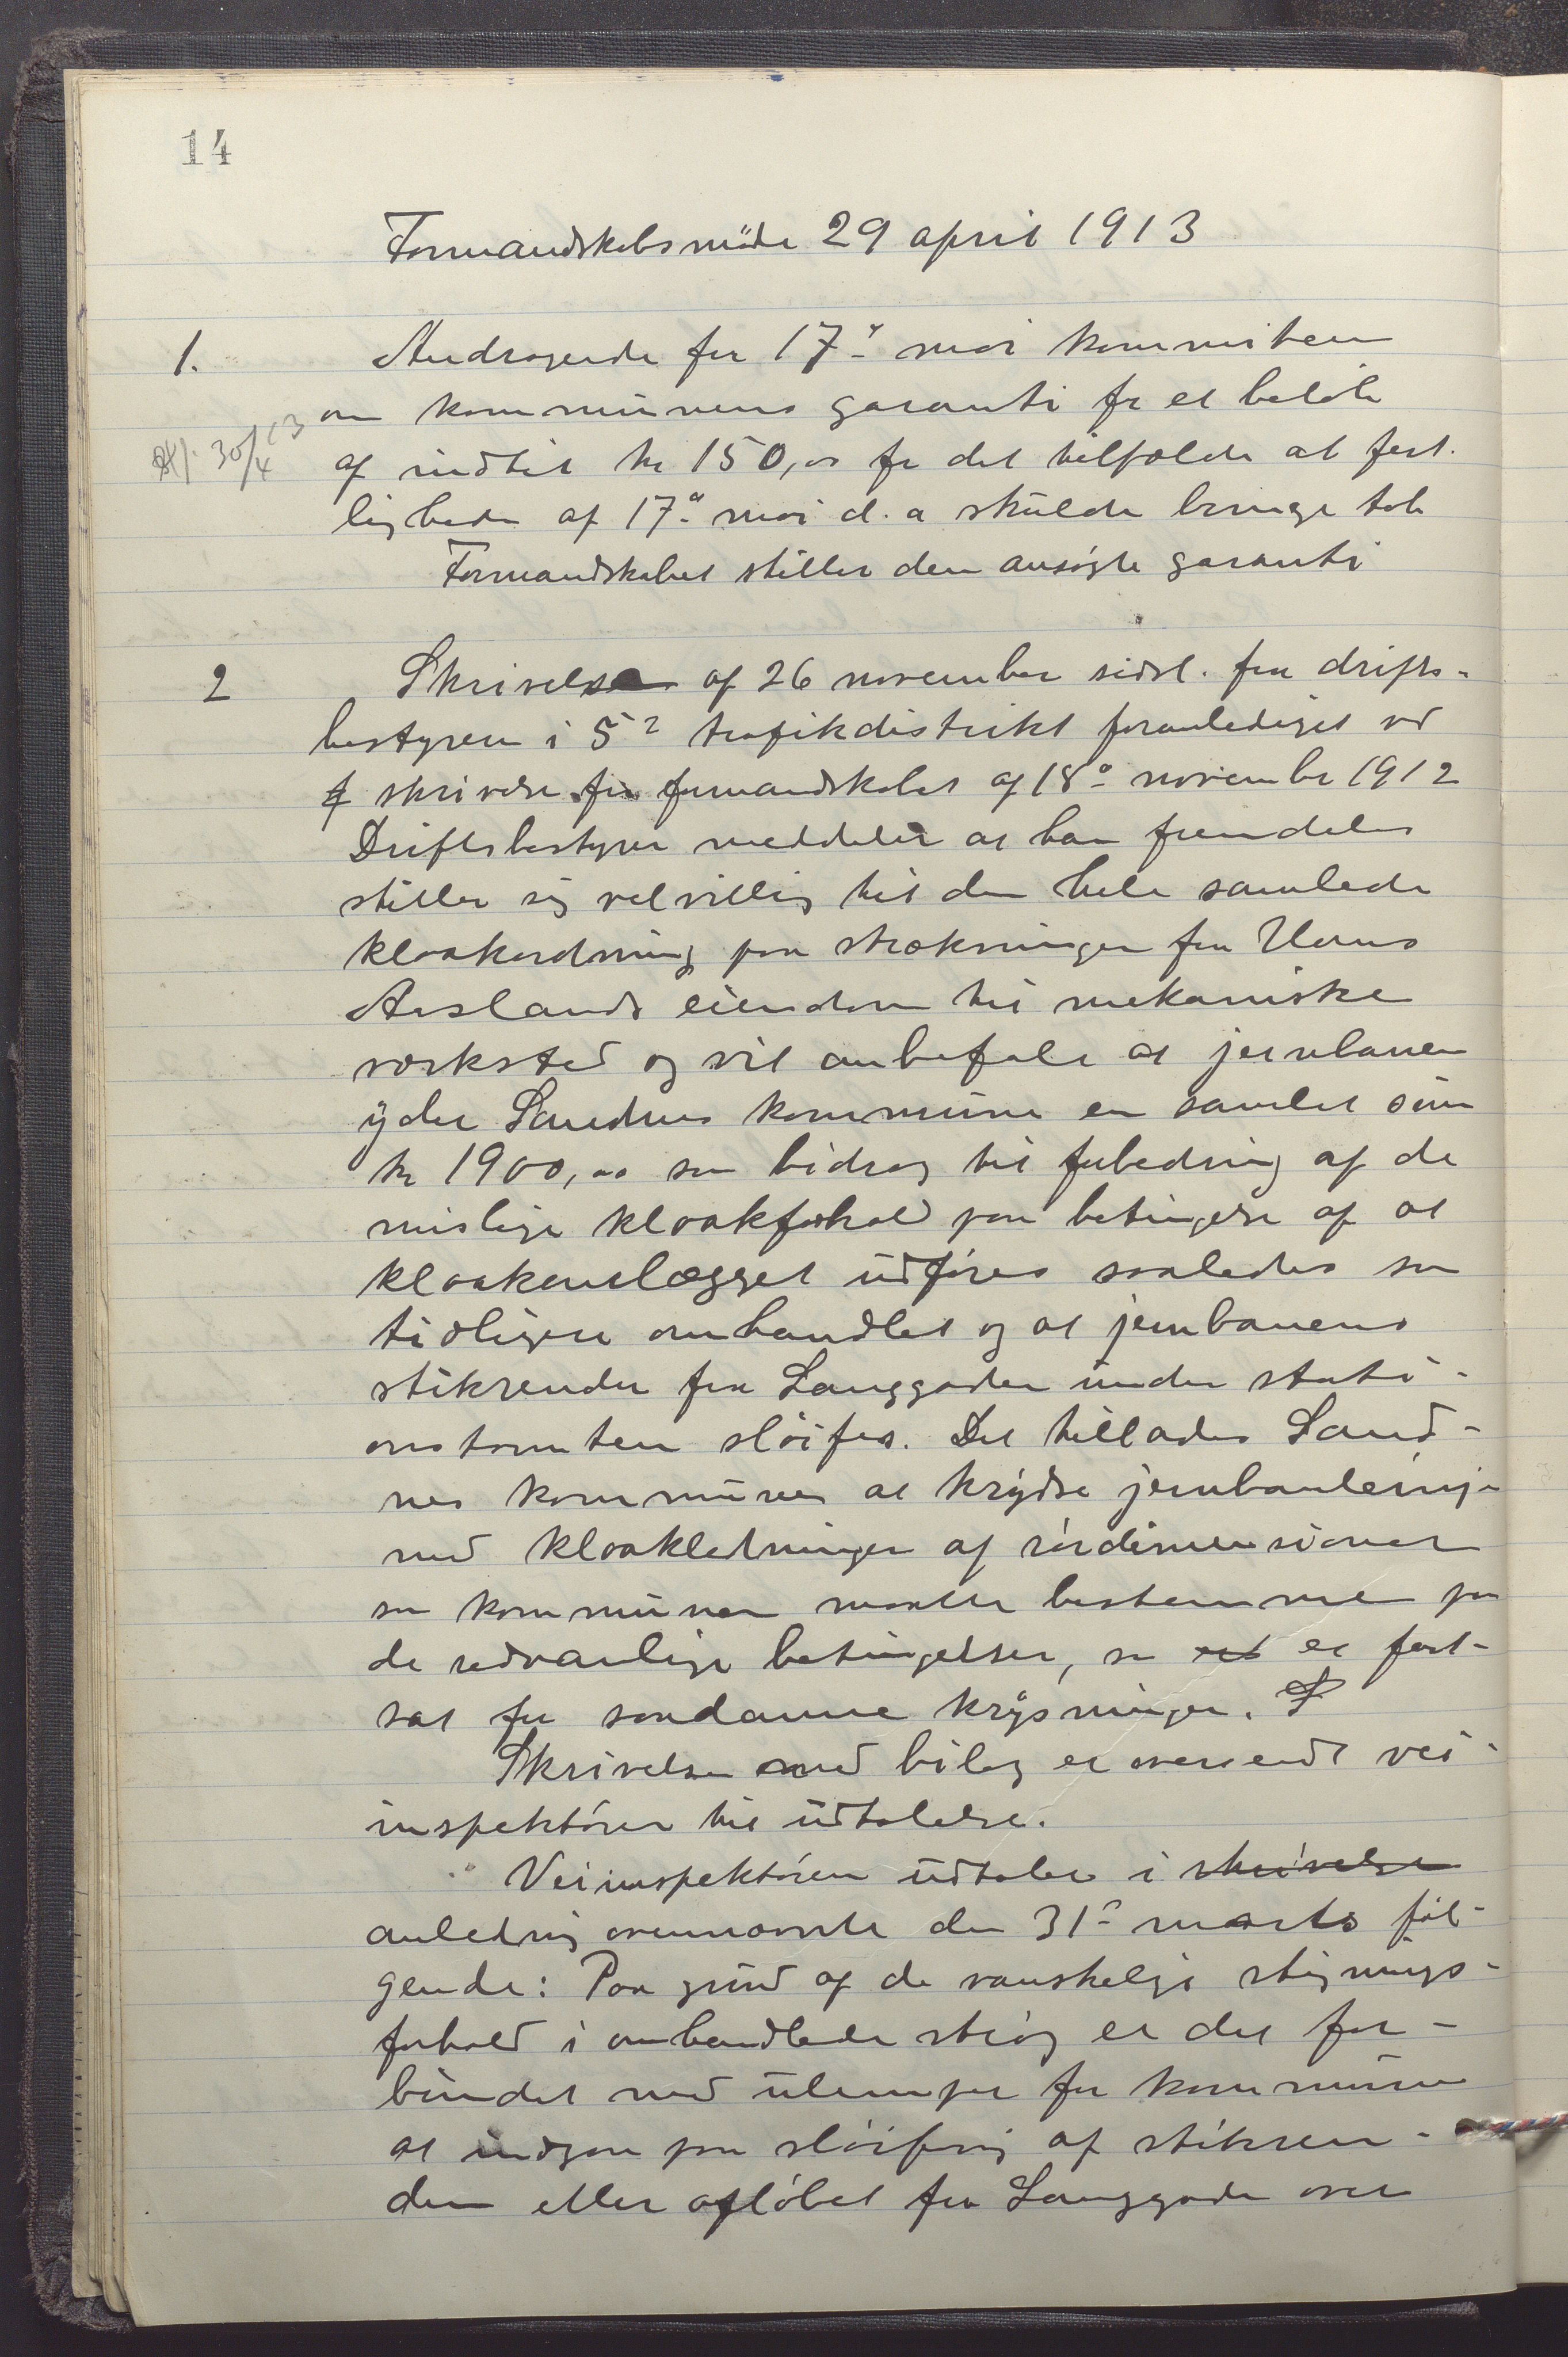 14
Formandskabsmöde 29 april 1913
1. Andragende fra 17de mai kommiteen
om kommunens garanti for et beløb
af indtil kr 150,00 for det tilfælde at fest-
30/4 13
ligheden af 17de mai d. a skulde bringe tab
Formandskabet stiller den ansøgte garanti
2 Skrivelse af 26 november sidst. fra drifts-
bestyreren i 5te trafikdistrikt foranlediget ved
skrivelse fra formandskabet af 18de november 1912
Driftsbestyrer meddeler at han fremdeles
stiller sig velvillig til den hele samlede
kloakordning paa strækningen fra Hans
Aaslands eiendom til mekaniske
værksted og vil anbefale at jernbanen
yder Sandnes kommune en samlet sum
kr 1900,00 som bidrag til forbedring af de
mislige kloakforhold paa betingelse af at
kloakanlægget udføres saaledes som
tidligere omhandlet og at jernbanens
stikrender fra Langgaden under stati-
onstomten sløifes. Det tillades Sand-
nes kommune at krydse jernbanelinje
med kloakledninger af rørdimensioner
som kommunen maatte bestemme paa
de sedvanlige betingelser, som er fast-
sat for saadanne krysninger.
Skrivelsen med bilag er oversendt vei-
inspektøren til udtalelse.
Veiinspektøren udtaler i skrivelse
anledning ovennævnte den 31te marts føl-
gende: Paa grund af de vanskelige stignings-
forhold i omhandlede strøg er det for-
bundet med ulemper for kommunen
at indgaa paa sløifning af stikren-
den eller afløbet fra Langgade over